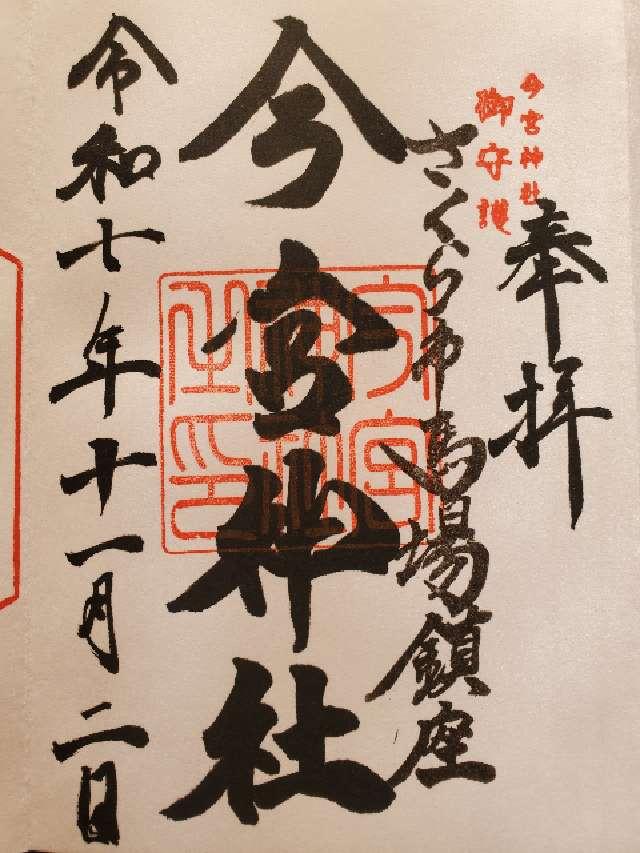 奉拝
今宮神社
御守護
さくら市馬場鎮座
今宮神社
令和七年十一月二日